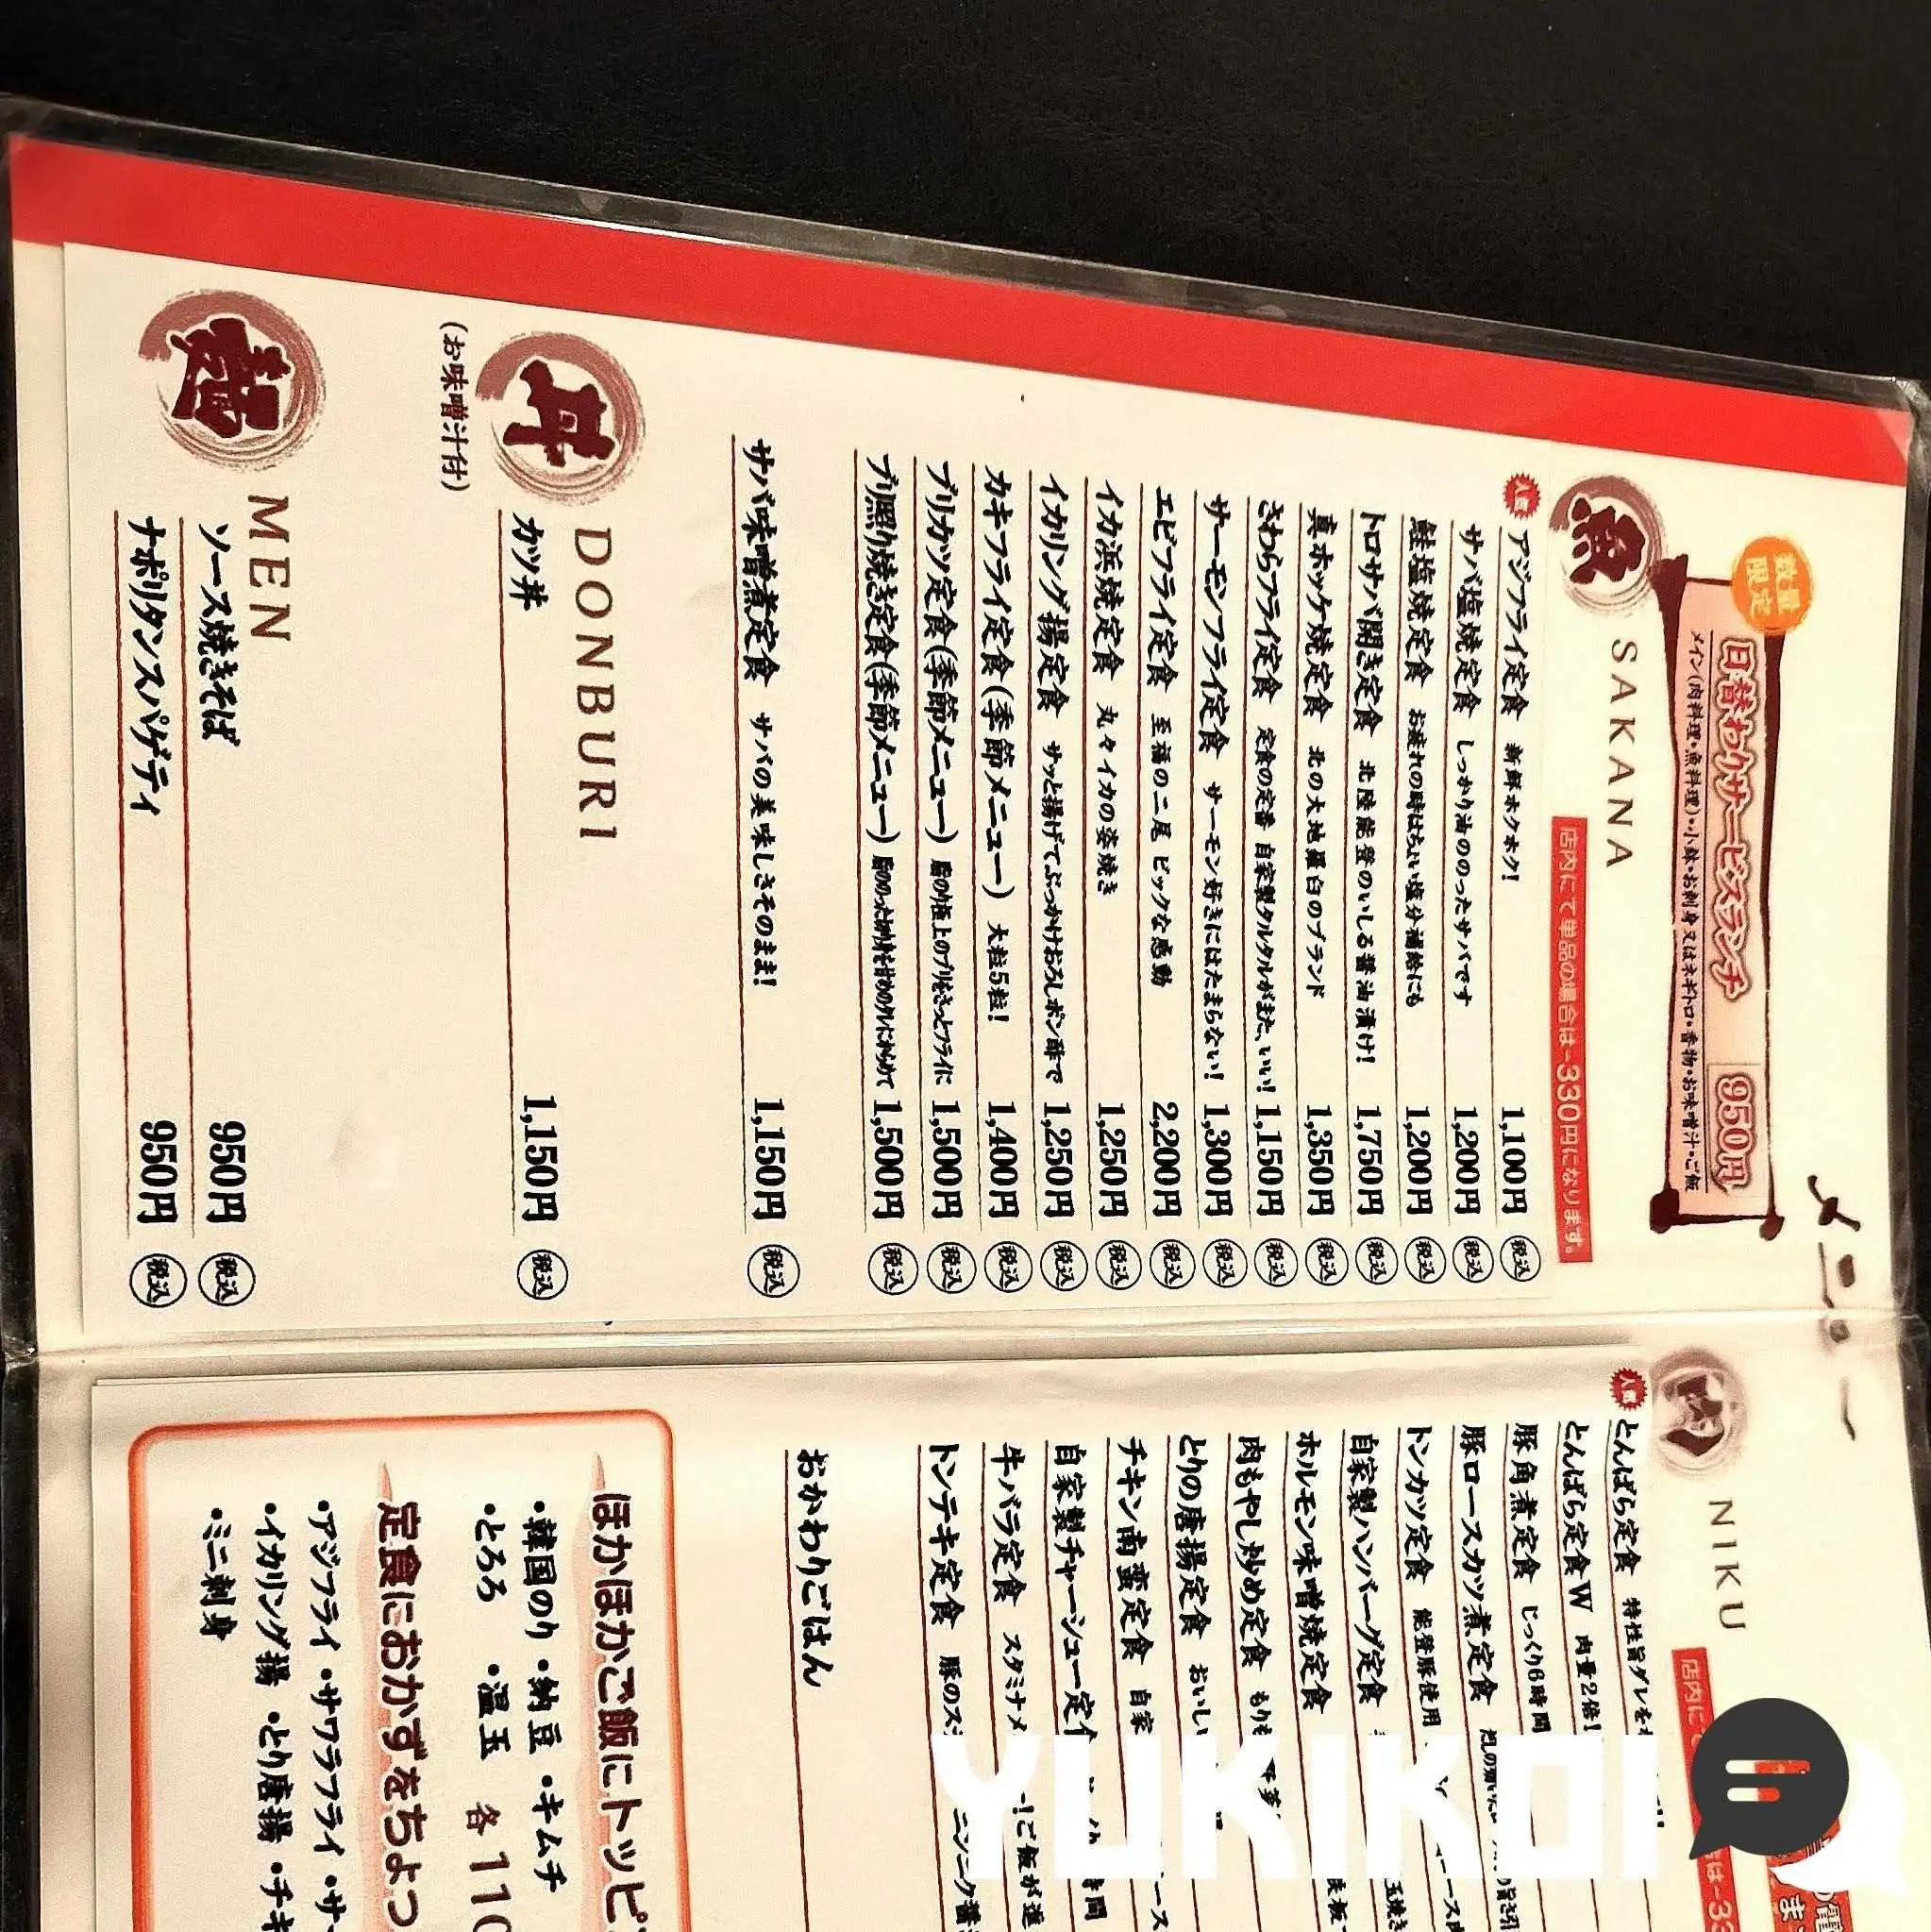 メニュー
数量限定
日替わりサービスランチ 950円
メイン(肉料理・魚料理)・小鉢・お刺身又はネギトロ・香物・お味噌汁・ご飯
魚 SAKANA
店内にて単品の場合は-330円になります。
人気 アジフライ定食 新鮮ホクホク! 1,100円 税込
サバ塩焼定食 しっかり油ののったサバです 1,200円 税込
鮭塩焼定食 お疲れの時はちょい塩分補給にも 1,200円 税込
トロサバ開き定食 北陸能登のいしる醤油漬け! 1,750円 税込
真ホッケ焼定食 北の大地羅臼のブランド 1,350円 税込
さわらフライ定食 定食の定番 自家製タルタルがまた、いい! 1,150円 税込
サーモンフライ定食 サーモン好きにはたまらない! 1,300円 税込
エビフライ定食 至福の二尾 ビックな感動 2,200円 税込
イカ浜焼定食 丸々イカの姿焼き 1,250円 税込
イカリング揚定食 サッと揚げてぶっかけおろしポン酢で 1,250円 税込
カキフライ定食(季節メニュー) 大粒5粒! 1,400円 税込
ブリカツ定食(季節メニュー) 脂の極上のブリをさっとフライに 1,500円 税込
ブリ照り焼き定食(季節メニュー) 脂ののった切身を甘めのタレにからめて 1,500円 税込
サバ味噌煮定食 サバの美味しさそのまま! 1,150円 税込
丼 DONBURI
(お味噌汁付)
カツ丼 1,150円 税込
麺 MEN
ソース焼きそば 950円 税込
ナポリタンスパゲティ 950円 税込
肉 NIKU
店内に
は-33
人気 とんばら定食 特性旨ダレを
とんばら定食W 肉量2倍!
豚角煮定食 じっくり6時間
豚ロースカツ煮定食
トンカツ定食 能登豚使用
自家製ハンバーグ定食
ホルモン味噌焼定食
肉もやし炒め定食 もりも
とりの唐揚定食 おいし
チキン南蛮定食 自家
自家製チャーシュー定食
牛バラ定食 スタミナメ ご飯が進
トンテキ定食 豚のス ニンニク醤
おかわりごはん
ほかほかご飯にトッピ
・韓国のり ・納豆 ・キムチ
・とろろ ・温玉 各110
定食におかずをちょっ
・アジフライ ・サワラフライ ・サー
・イカリング揚 ・とり唐揚 ・チキ
・ミニ刺身
YUKIKOI